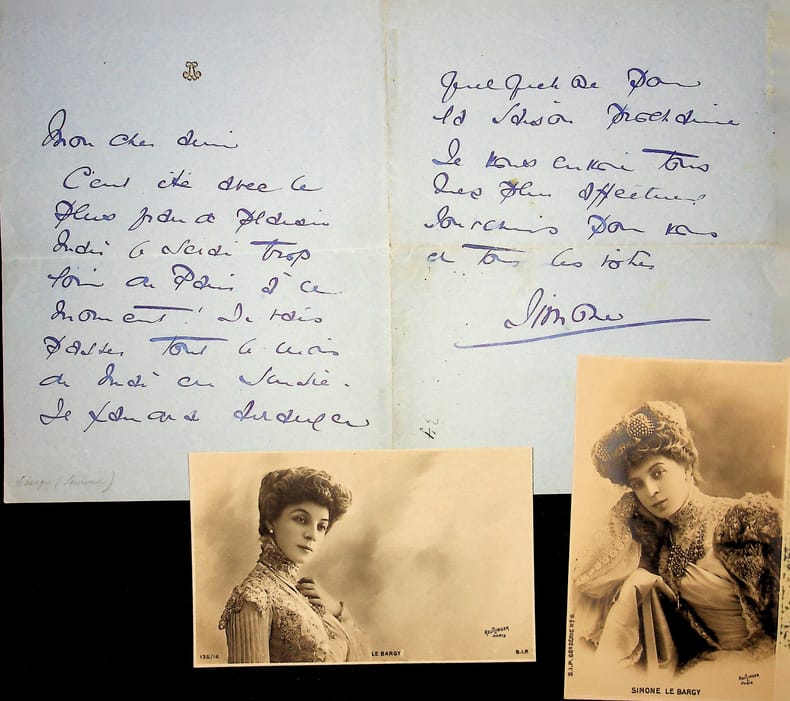 Mon cher ami
C'eut été avec le
plus grand plaisir
mais je serai trop
loin de Paris à ce
moment! Je vais
passer tout le mois
de mai en
Je
quelque chose pour
la saison prochaine
Je vous envoie tous
mes plus affectueux
souvenirs pour vous
et tous les vôtres
Simone
(Simone)
135/16
LE BARGY
REUTLINGER
PARIS
S.I.P.
S.I.P.
REUTLINGER
PARIS
SIMONE LE BARGY